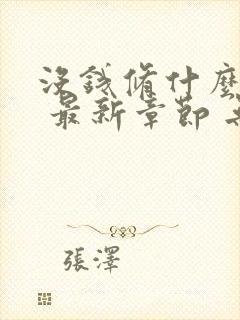 沒錢脩什麼
最新章節
張澤